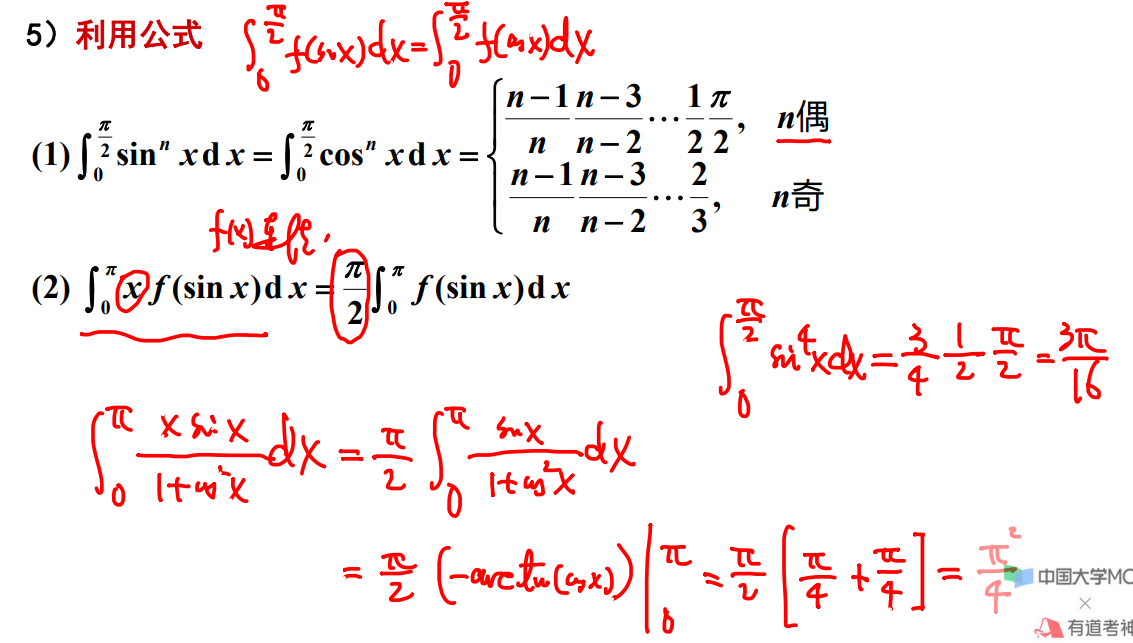 5）利用公式 ∫₀^{π/2} f(sin x)dx = ∫₀^{π/2} f(cos x)dx
(1) ∫₀^{π/2} sinⁿ x d x = ∫₀^{π/2} cosⁿ x d x = { (n−1)/n (n−3)/(n−2) ⋯ 1/2 π/2, n偶
(n−1)/n (n−3)/(n−2) ⋯ 2/3, n奇
f(x)连续.
(2) ∫₀^π x f(sin x)d x = π/2 ∫₀^π f(sin x)d x
∫₀^{π/2} sin⁴x dx = 3/4 1/2 π/2 = 3π/16
∫₀^π (x sin x)/(1+cos²x) dx = π/2 ∫₀^π (sin x)/(1+cos²x) dx
= π/2 (−arctan(cos x)) |₀^π = π/2 [π/4 + π/4] = π²/4
中国大学MO
×
有道考神